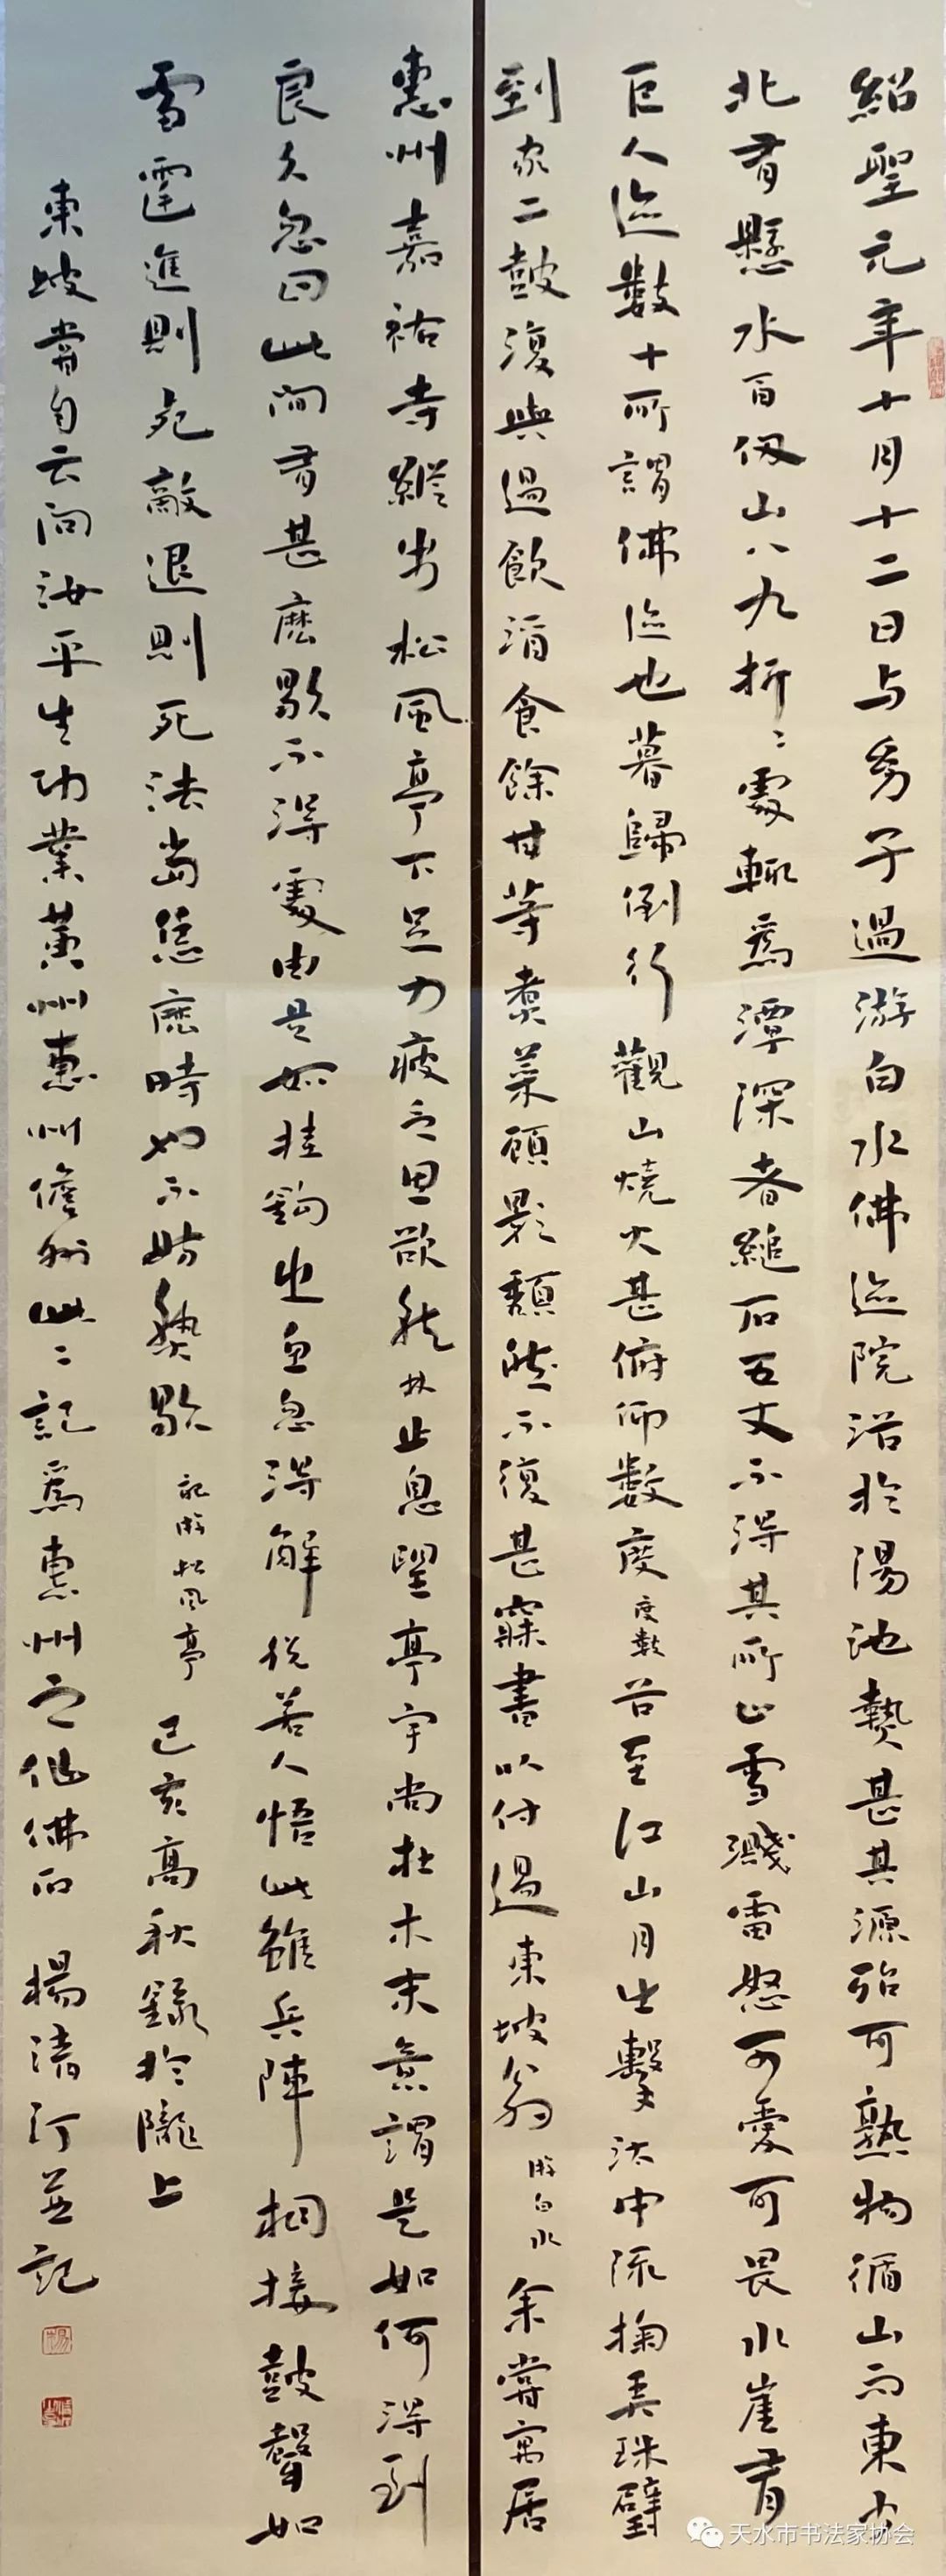 紹聖元年十月十二日与幼子過游白水佛迹院浴於湯池熱甚其源殆可熟物循山而東少
北有懸水百仞山八九折折處輒爲潭深者縋石五丈不得其所止雪濺雷怒可愛可畏水崖有
巨人迹數十所謂佛迹也暮歸倒行觀山燒火甚俯仰數度度數谷至江山月出擊汰中流掬弄珠璧
到家二鼓復與過飲酒食餘甘等煮菜顧影頹然不復甚寐書以付過東坡翁 游白水 余嘗寓居
惠州嘉祐寺縱步松風亭下足力疲乏思欲就林止息望亭宇尚在木末意謂是如何得到
良久忽曰此間有甚麽歇不得處由是如挂鉤之魚忽得解脫若人悟此雖兵陣相接鼓聲如
雷霆進則死敵退則死法當恁麽時也不妨熟歇 記游松風亭 己亥高秋錄於隴上
東坡嘗自云問汝平生功業黃州惠州儋州此二記爲惠州之作佛而 楊清汀並記
天水市书法家协会